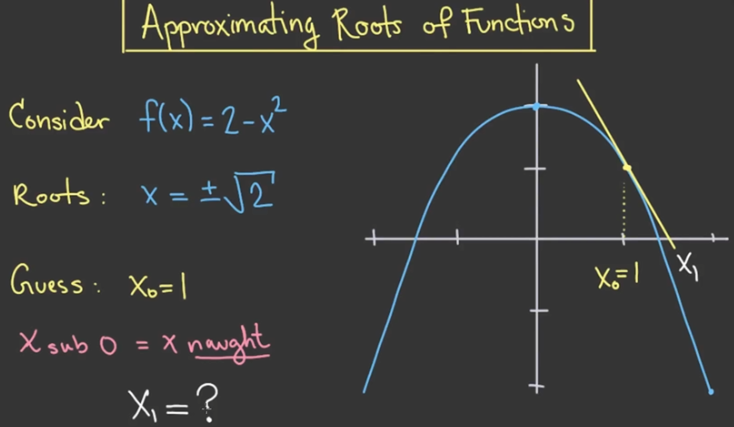 Approximating Roots of Functions
Consider f(x) = 2 - x²
Roots: x = ±√2
Guess: x₀ = 1
x sub 0 = x naught
x₁ = ?
x₀ = 1
x₁